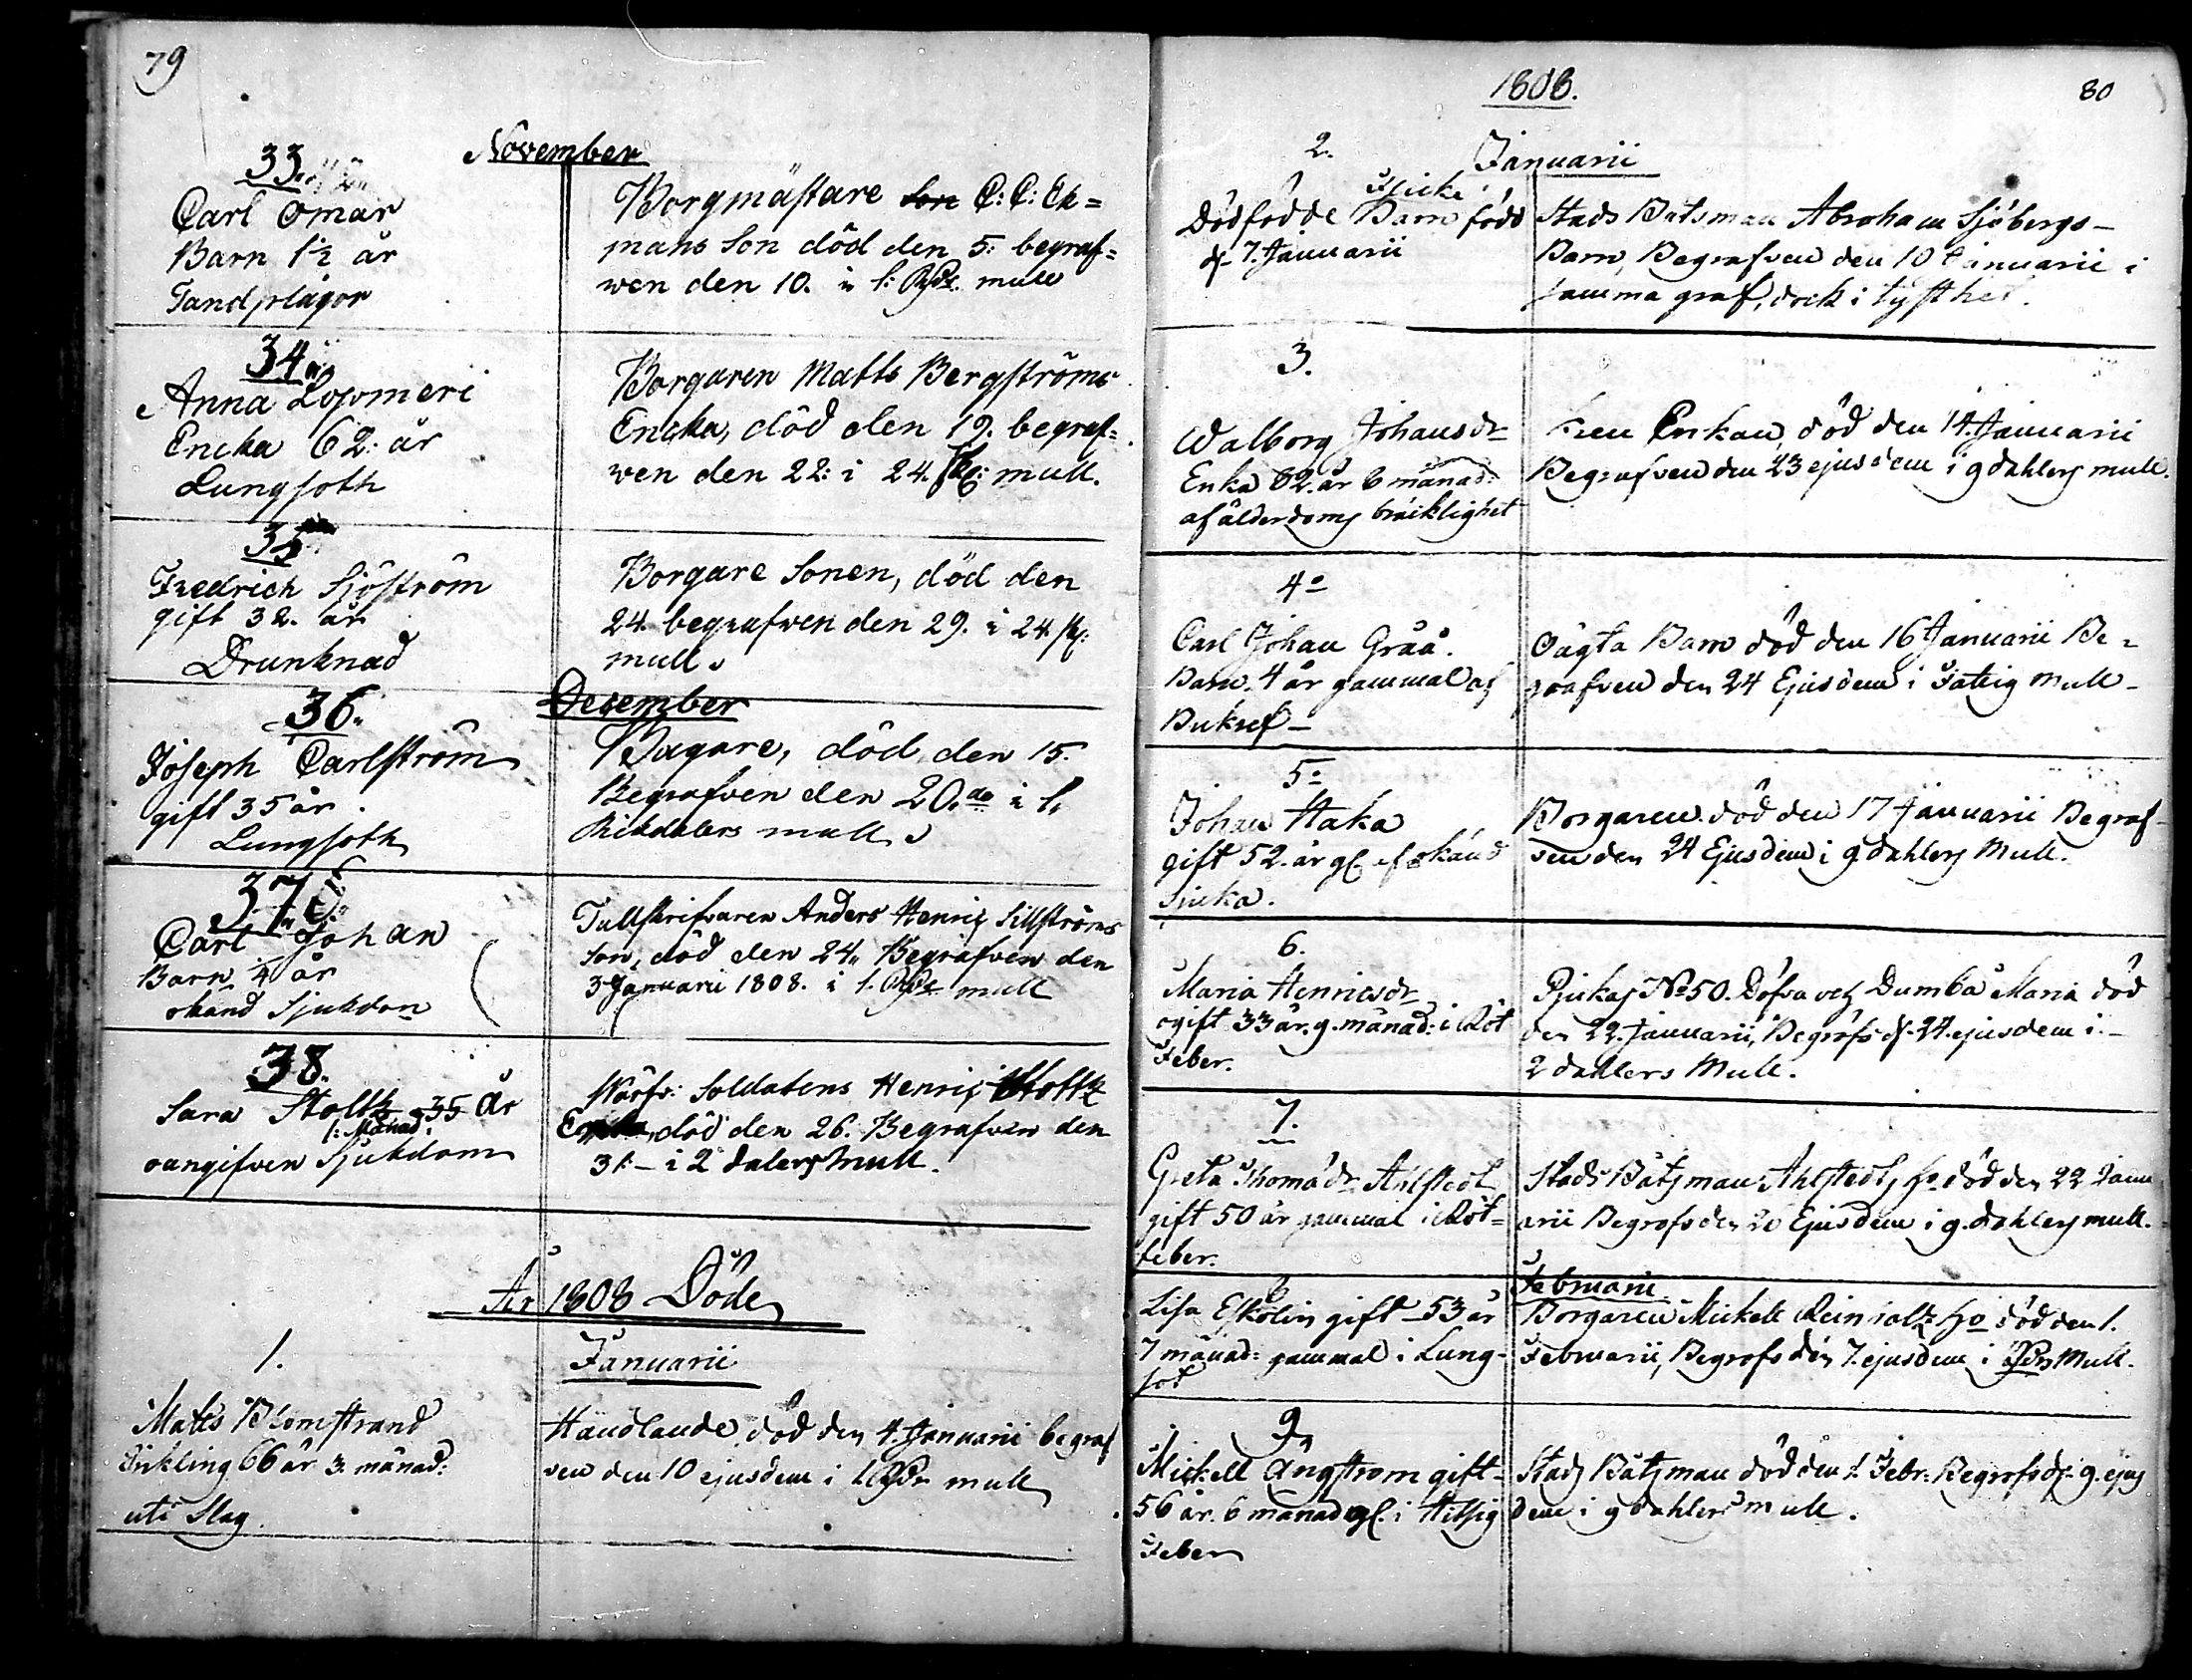 79
November
33.
Carl Omar
Barn 1½ år
Tandplågor
Borgmästare Son C: C: Ek=
mans Son död den 5: begraf=
wen den 10. i 1: Rdr mull
34
Anna
Encka 62: år
Lungsoth
Borgaren Matts Bergströms
Encka, död den 19. begraf=
wen den 22: i 24. sk: mull.
35
Fredrich Sjöström
gift 32. år
Drunknad
Borgare Sonen, död den
24. begrafwen den 29. i 24. sk:
mull.
36.
December
Joseph Carlström
gift 35 år.
Lungsoth
Bagare, död den 15.
Begrafven den 20.de i 1.
Rikdalers mull
37
Carl Johan
Barn ¼ år
okänd Sjukdom
Tullskrifvaren Anders Henric Sillströms
Son, död den 24. Begrafven den
3 Januarii 1808. i 1. Rdr mull
38.
Sara Stoltz 35 År
1: Månad:
oangifven Sjukdom
Wärfv: Soldatens Henric Stoltz
Encka, död den 26. Begrafven den
31.- i 2 dalers mull.
År 1808 Döde
1.
Januarii
Matts Blomstrand
Änkling 66 år 3. månad:
uti Slag.
Handlande, död den 4. Januarii begraf
ven den 10 ejusdem i 1 Rdr mull
1808.
80
2.
Januarii
Flicke
Dödfödde Barn född
d. 7. Januarii
Stads Båtsman Abraham Sjöbergs-
Barn, Begrafven den 10 Januarii i
samma graf, dock i tysthet.
3.
Walborg Johansdr
Enka 82. år 6 månad:
af ålderdoms bräcklighet
Enkan, död den 14. Januarii
Begrafven den 23 ejusdem i 9 dahlers mull.
4o
Carl Johan Gråå.
Barn. 4 år gammal af
Bukref-
Oägta Barn död den 16 Januarii Be=
grafven den 24 Ejusdem i Fattig mull-
5:
Johan Haka
gift 52. år gl. af okänd
Sjuka.
Borgaren. död den 17 Januarii Begraf-
ven den 24 Ejusdem i 9 dahlers Mull.
6.
Maria Henricsdr
ogift 33 år. 9. månad: i Röt
Feber.
No 50. Döfva och Dumba Maria död
den 22. Januarii, Begrofs d. 24. ejusdem i.-
2 dahlers Mull.
7.
Greta Thomädr Ahlstedt
gift 50 år gammal i Röt=
feber.
Stads Båtsman Ahlstedts Ho död den 22 Janu
arii Begrofs den Ejusdem i 9. dahlers mull.
8
Februarii
Lisa Eskolin gift - 53 år
7 månad: gammal i Lung-
sot
Borgaren Mickell Reinholtz Ho död den 1.
Februarii, Begrofs den 7. ejusdem i Rdrs Mull.
9
Mickell Ångström gift-
56 år. 6 månad gl. i Hitsig
Feber
Stads Båtsman död den 1. Febr: Begrofs d. 9. ejus
dem i 9 dahlers mull.